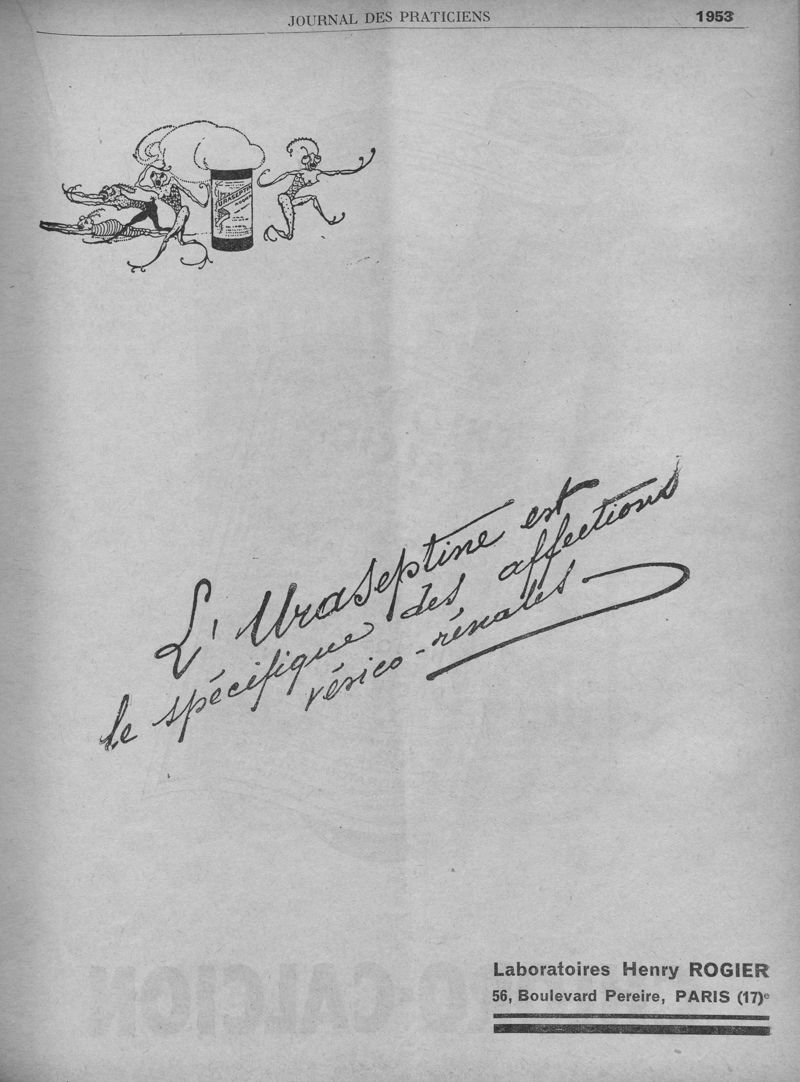 JOURNAL DES PRATICIENS
1953
URASEPTINE
L'Uraseptine est
le spécifique des affections
vésico-rénales
Laboratoires Henry ROGIER
56, Boulevard Pereire, PARIS (17)e